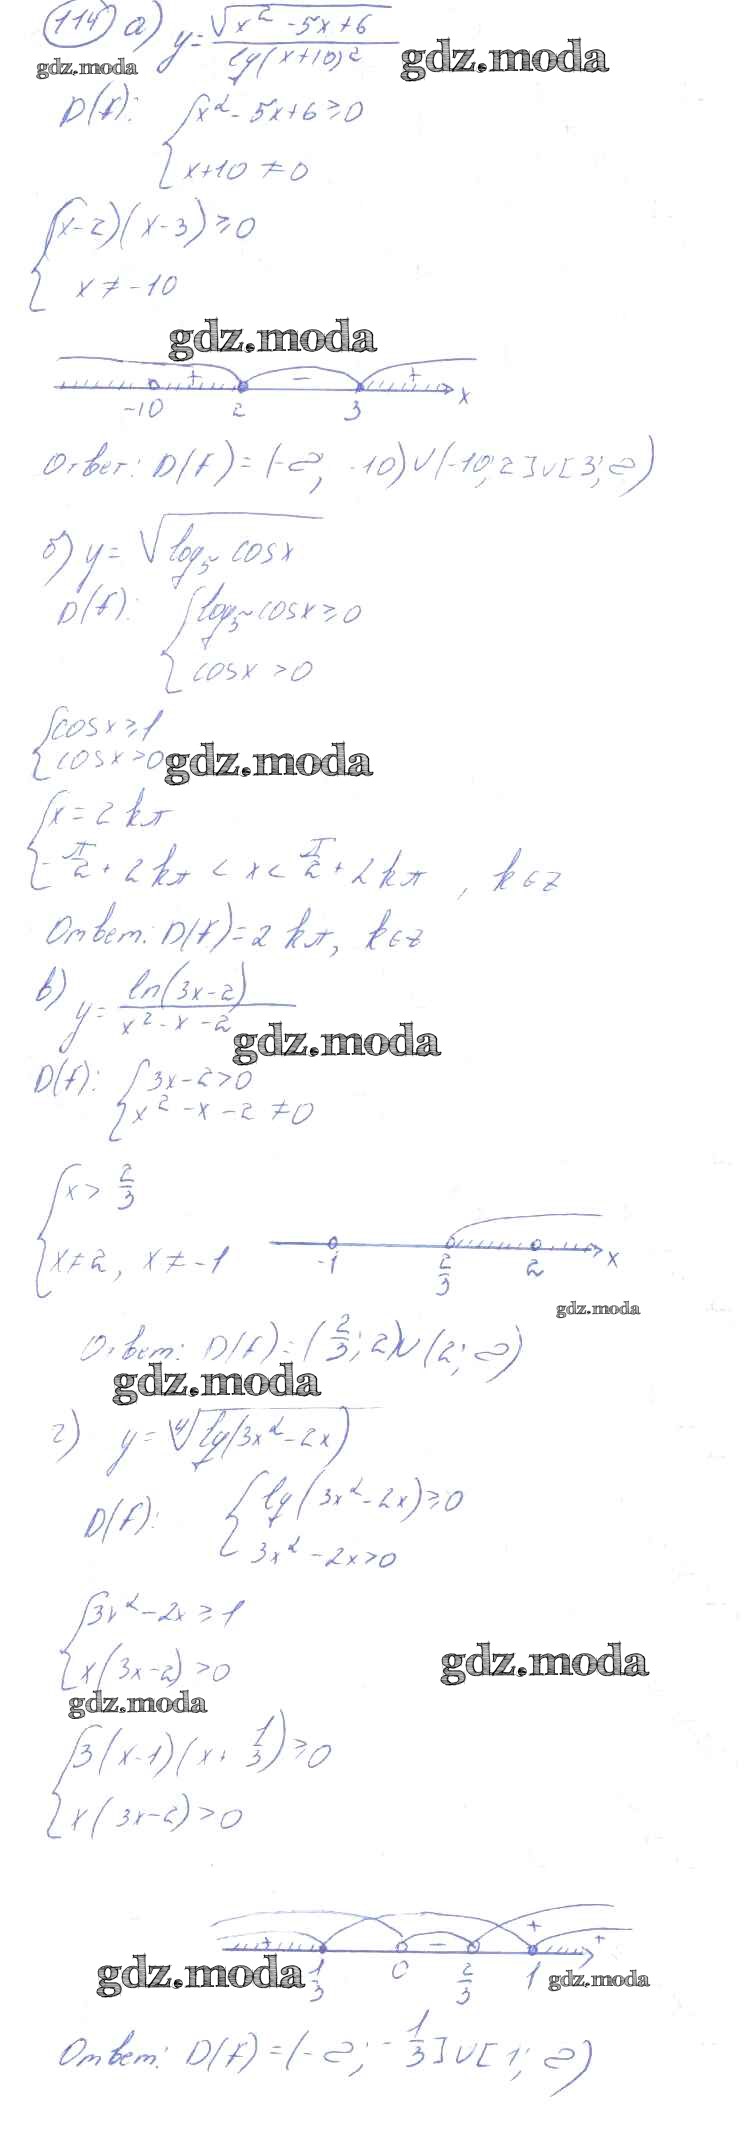 114 а) y = √(x² - 5x + 6) / lg(x+10)²
gdz.moda
gdz.moda
D(f): { x² - 5x + 6 ≥ 0
x + 10 ≠ 0
{ (x-2)(x-3) ≥ 0
x ≠ -10
gdz.moda
+ - +
-10 2 3 x
Ответ: D(f) = (-∞; -10) ∪ (-10; 2] ∪ [3; ∞)
б) y = √(log₅ cosx)
D(f): { log₅ cosx ≥ 0
cosx > 0
{ cosx ≥ 1
cosx > 0
gdz.moda
{ x = 2kπ
-π/2 + 2kπ < x < π/2 + 2kπ, k∈z
Ответ: D(f) = 2kπ, k∈z
в) y = ln(3x-2) / (x² - x - 2)
gdz.moda
D(f): { 3x - 2 > 0
x² - x - 2 ≠ 0
{ x > 2/3
x ≠ 2, x ≠ -1
-1 2/3 2 x
gdz.moda
Ответ: D(f) = (2/3; 2) ∪ (2; ∞)
gdz.moda
г) y = ⁴√(lg(3x² - 2x))
D(f): { lg(3x² - 2x) ≥ 0
3x² - 2x > 0
{ 3x² - 2x ≥ 1
x(3x-2) > 0
gdz.moda
gdz.moda
{ 3(x-1)(x + 1/3) ≥ 0
x(3x-2) > 0
+ - + +
1/3 0 2/3 1
gdz.moda
gdz.moda
Ответ: D(f) = (-∞; -1/3] ∪ [1; ∞)